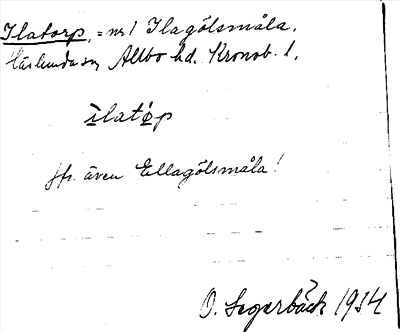 Ilatorp, = nr 1 Ilagölsmåla.
Härlunda sn, Allbo hd. Kronob. l.
ìlató̱p
jfr. även Ellagölsmåla!
O. Segerbäck 1934